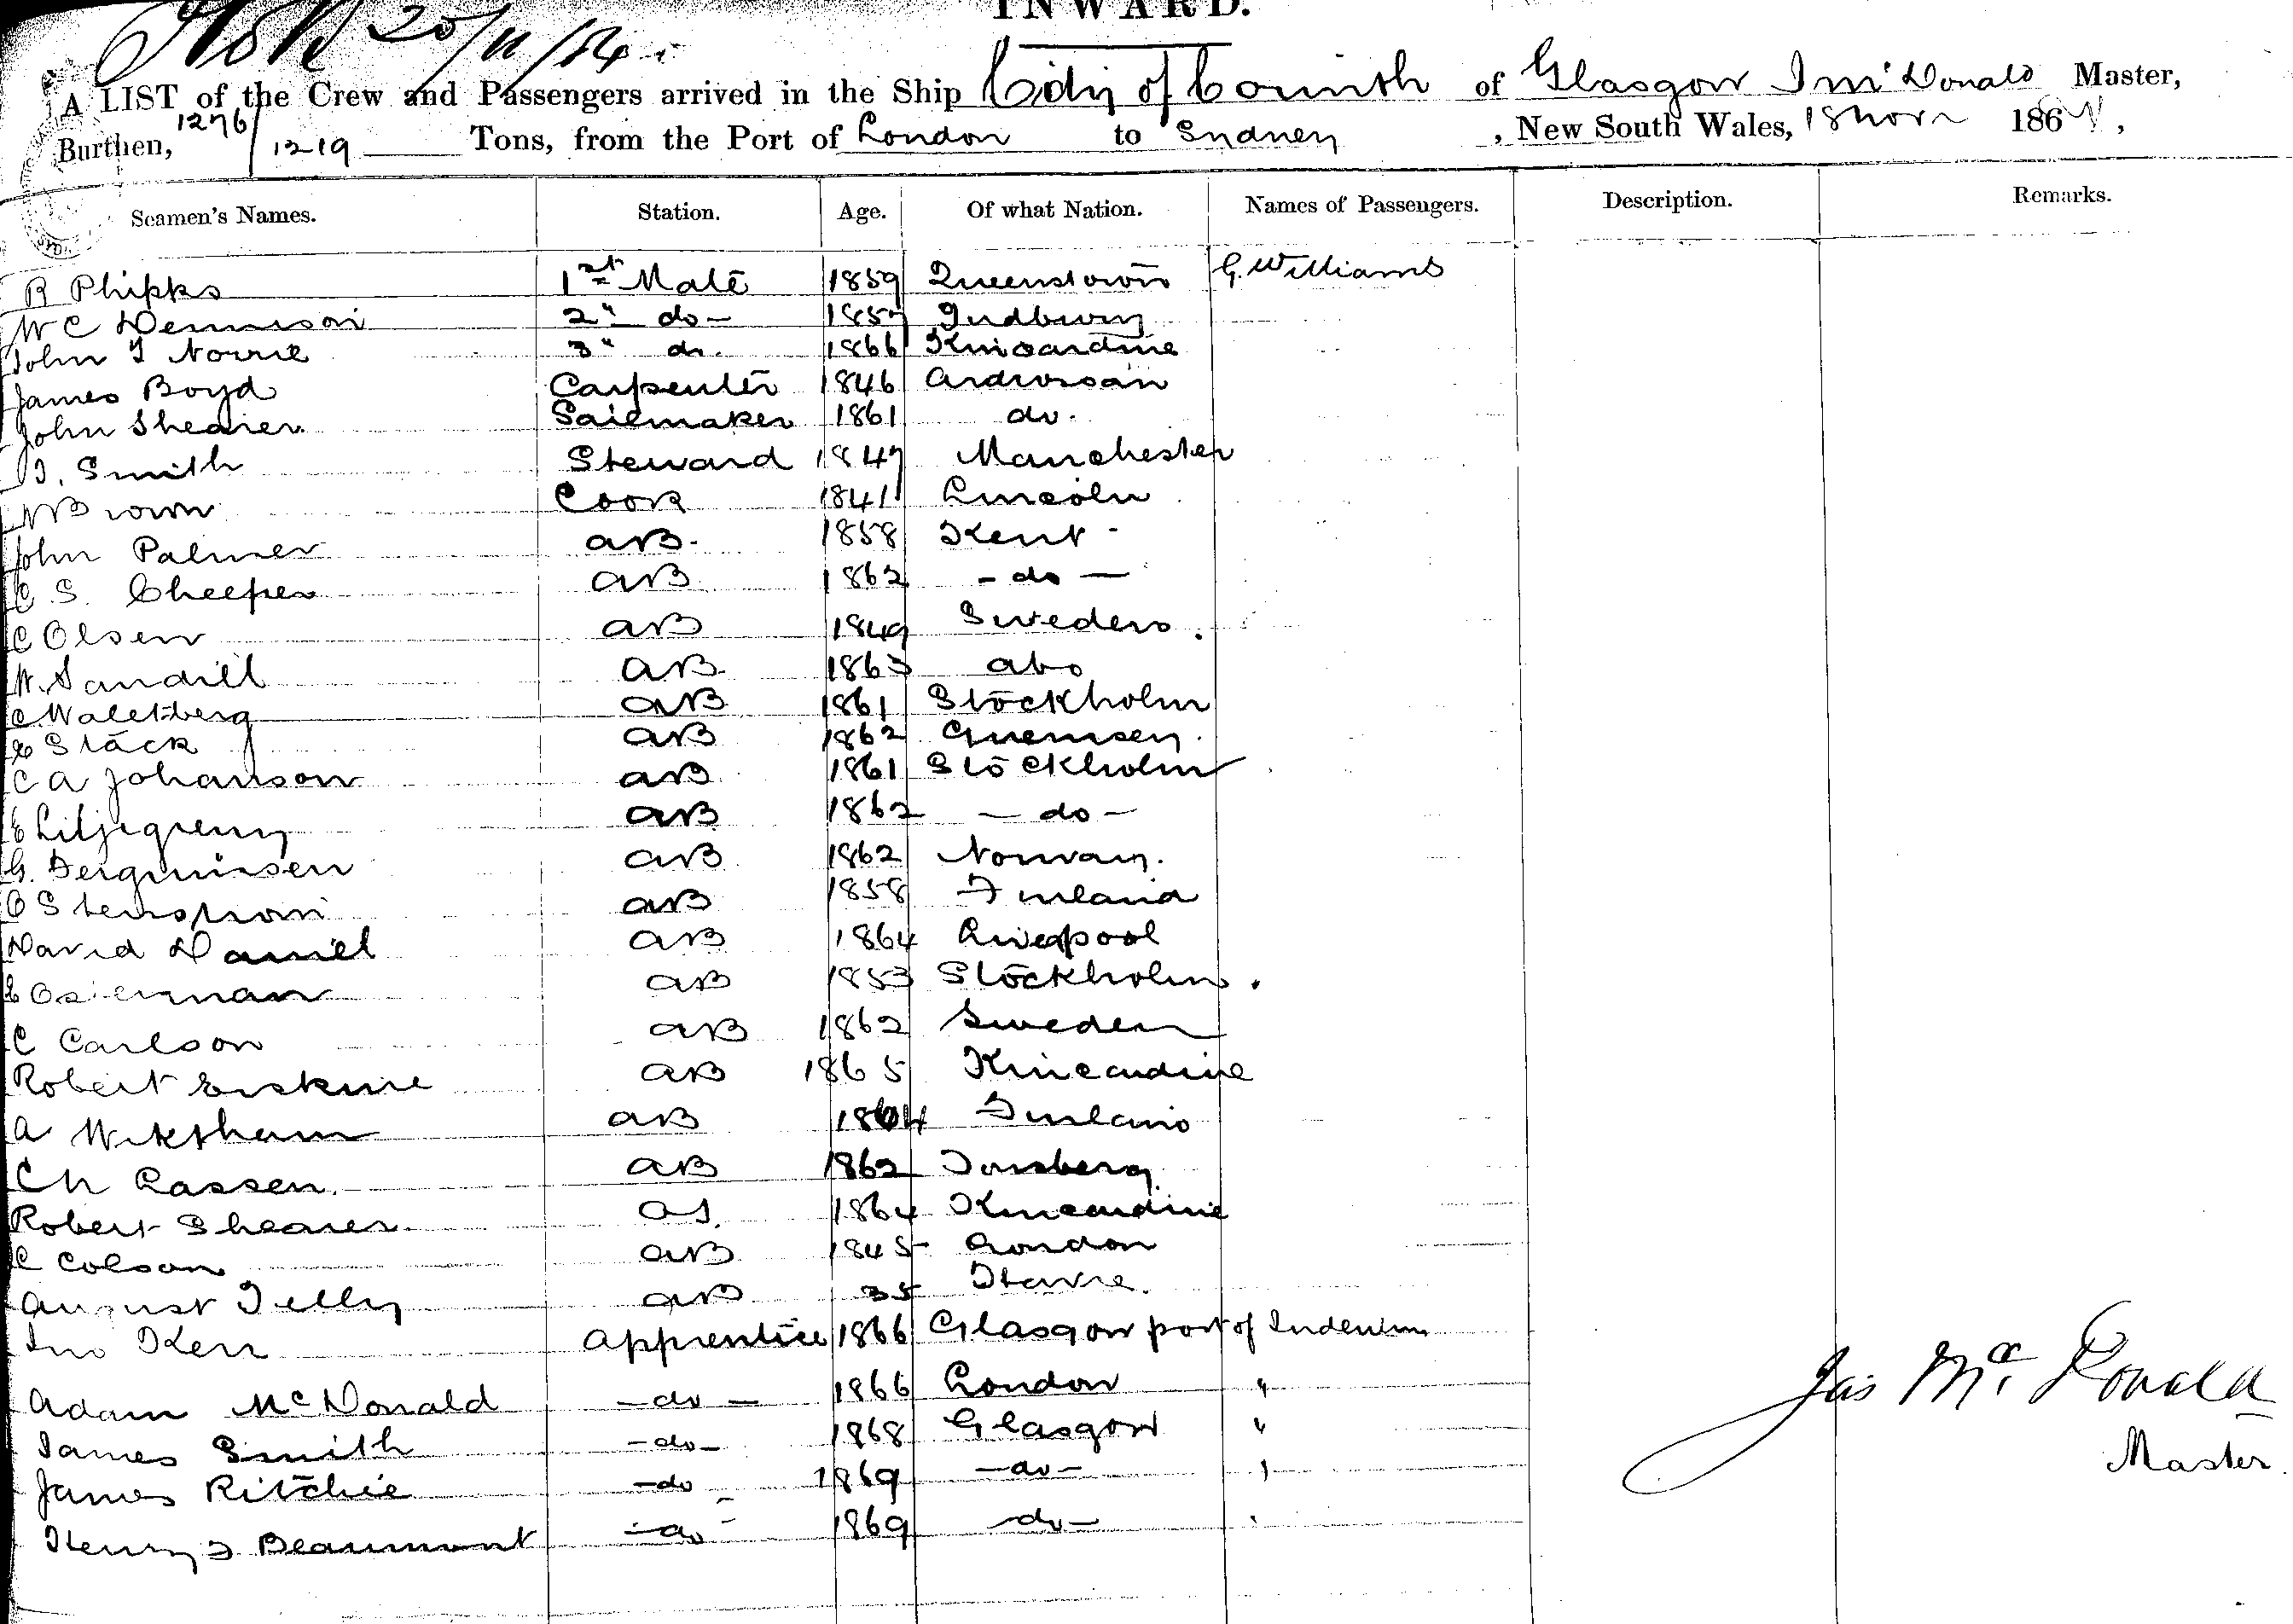 INWARD.
20/11/84
A LIST of the Crew and Passengers arrived in the Ship City of Corinth of Glasgow J McDonald Master,
Burthen, 1276/1219 Tons, from the Port of London to Sydney, New South Wales, 18 Novr 186
Seamen's Names. Station. Age. Of what Nation. Names of Passengers. Description. Remarks.
R Phipps 1st Mate 1859 Queenstown G. Williams
W C Dennison 2" do - 1857
John T Norrie 3" do. 1866 Kincardine
James Boyd Carpenter 1846 Ardrossan
John Shearer Sailmaker 1861 do.
J. Smith Steward 1847 Manchester
Brown Cook 1841 Lincoln
John Palmer AB. 1858 Kent -
C. S. Cheeper AB 1862 - do -
C Olsen AB 1849 Sweden.
W. Sandell AB 1863 Abo
C. Waletberg AB 1861 Stockholm
Stack AB 1862 Guernsey.
C A Johanson AB 1861 Stockholm
Liljegreny AB 1862 - do -
G. Fergmissen AB 1862 Norway.
O Stenstrom AB 1858 Finland
David Daniel AB 1864 Liverpool
Osterman AB 1853 Stockholm.
C Carlson AB 1862 Sweden
Robert Erskine AB 1865 Kincardine
A Wiksham AB 1864 Finland
Ch Lassen. AB 1862 Tonsberg.
Robert Shearer OS. 1864 Kincardine
C Colson AB 1845 London
August Telly AB 35 Havre.
Jno Kerr Apprentice 1866 Glasgow port of Indenture
Adam McDonald - do - 1866 London "
James Smith - do - 1868 Glasgow "
James Ritchie - do - 1869 - do - "
Henry J Beaumont - do - 1869 do -
Jas McDonald
Master.